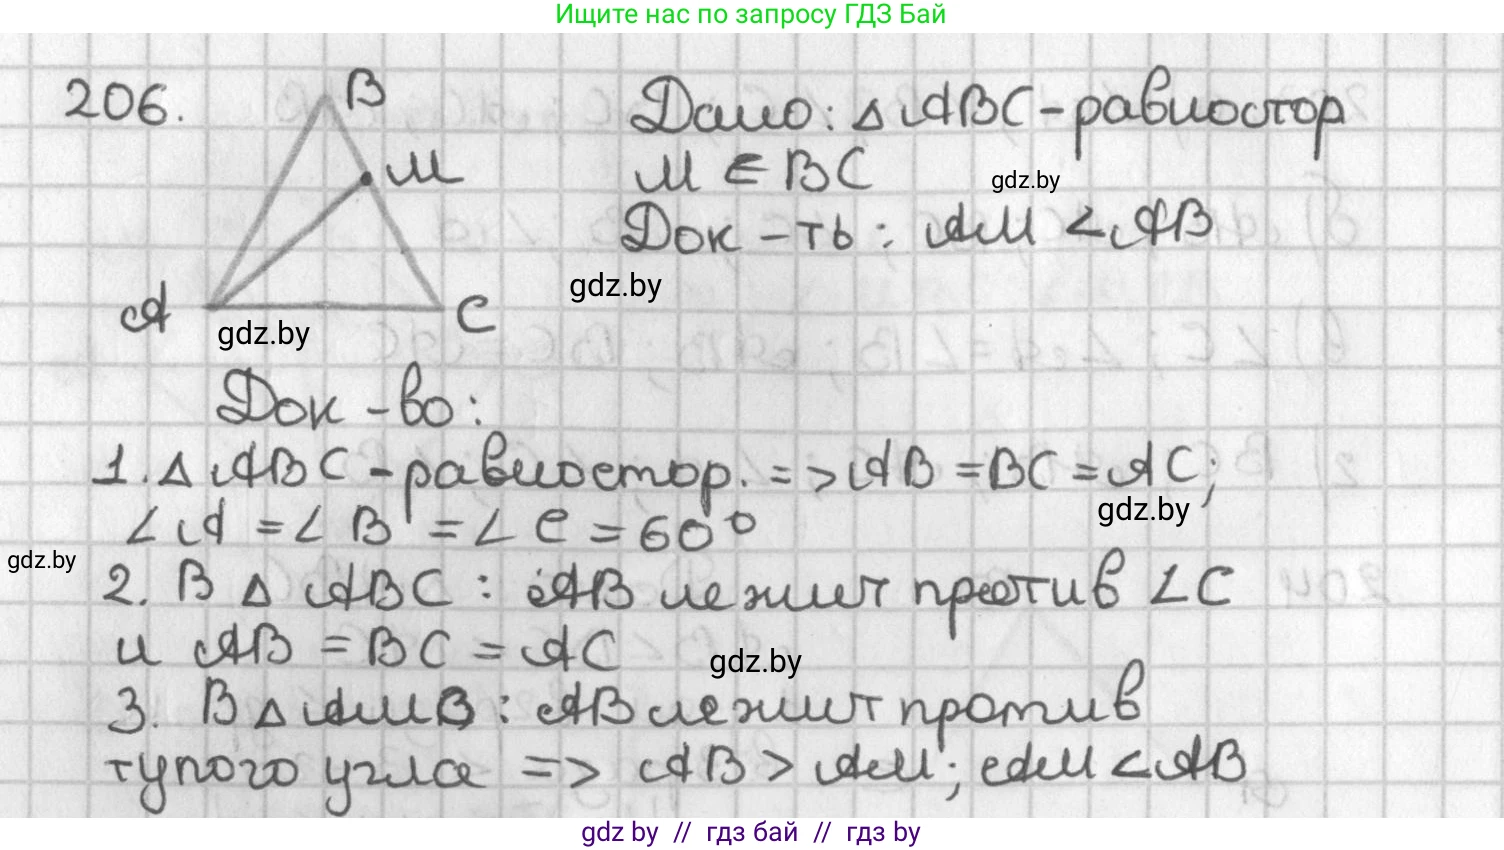 Ищите нас по запросу ГДЗ Бай
206.
B
M
A
C
Дано: △ ABC - равностор
M ∈ BC
gdz.by
Док - ть : AM < AB
gdz.by
gdz.by
Док - во :
1. △ ABC - равностор. => AB = BC = AC;
gdz.by
∠ A = ∠ B = ∠ C = 60°
gdz.by
2. В △ ABC : AB лежит против ∠ C
и AB = BC = AC
gdz.by
3. В △ AMB : AB лежит против
тупого угла => AB > AM; AM < AB
gdz by // гдз бай // гдз by